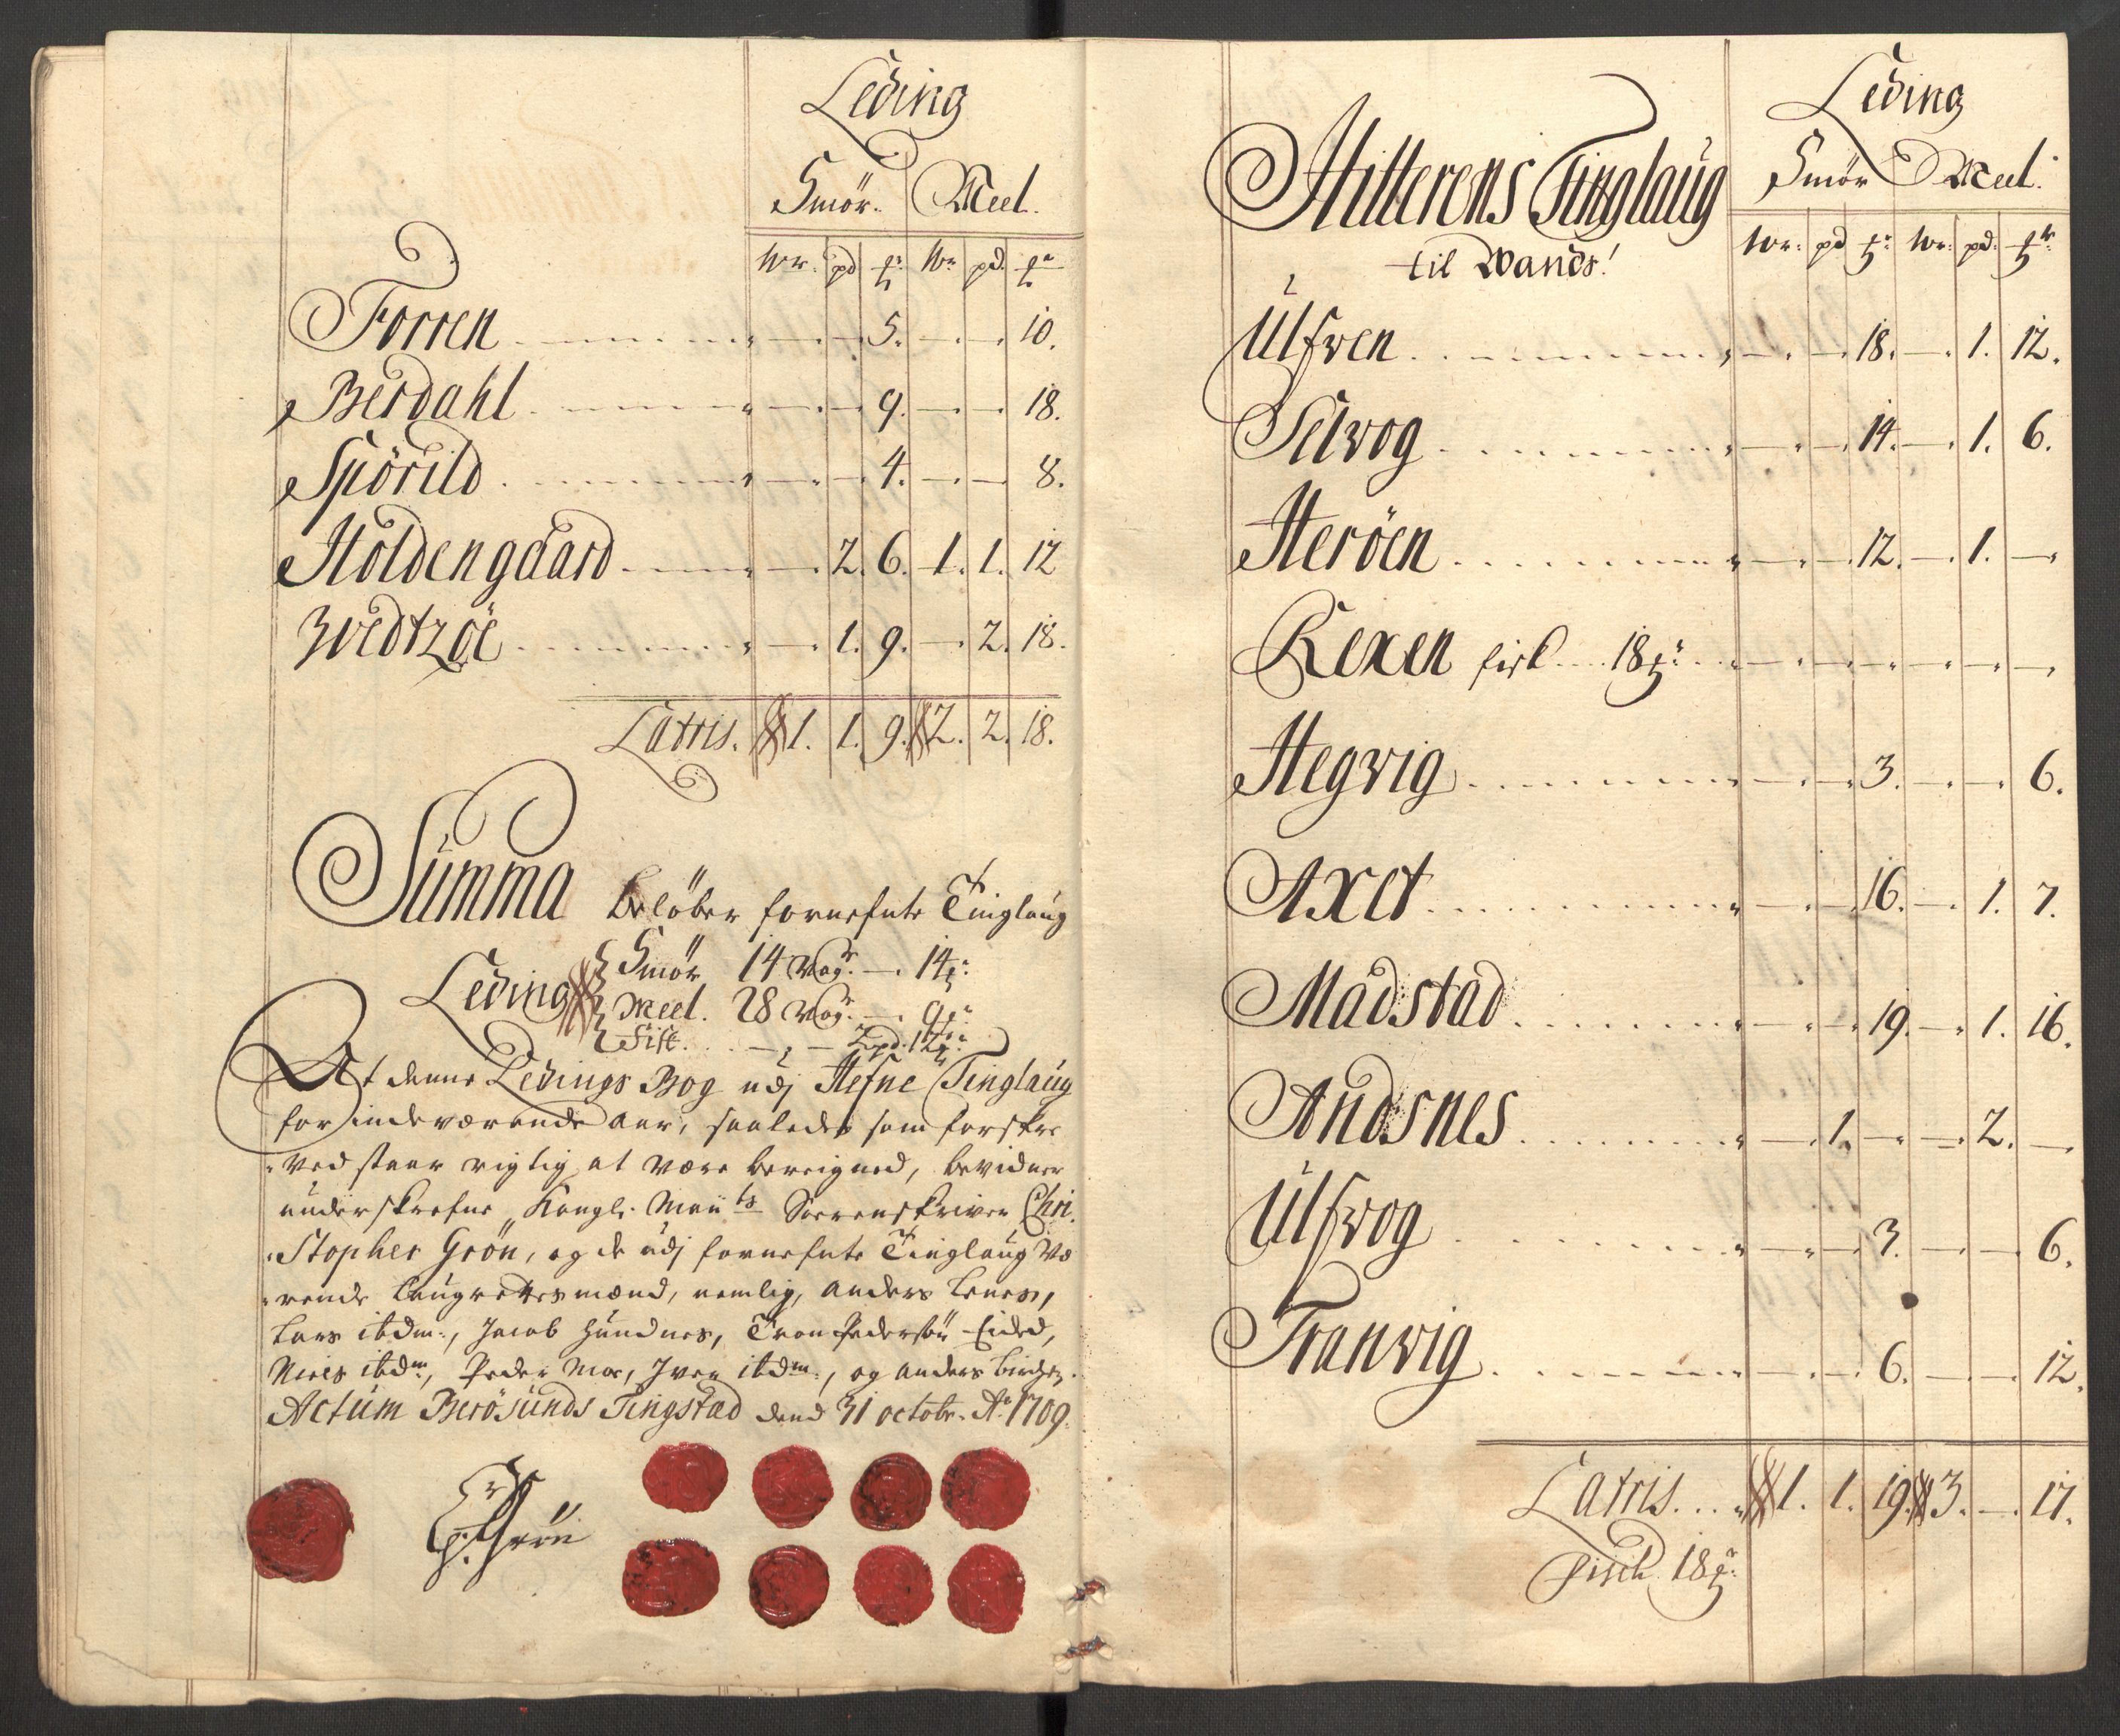 Leding
Smör. Meel.
wr. pd ℔r. wr pd. ℔r
Forren 5. 10.
Berdahl 9. 18.
Spörild 4. 8.
Holdengaard 2. 6. 1. 1. 12
Wedtzöe 1. 9. 2. 18.
Latris. 1. 1. 9. 2. 2. 18.
Summa beløber fornefnte Tinglaug
Smör 14 wogr. — . 14 ℔r.
Leding Meel. 28 wogr. — 9 ℔r.
Fisk. — , — 2 pd. 12 ℔r.
At denne Ledings Bog udj Hefne Tinglaug
for indeværende aar, saaledes som forskre
ved staar rigtig at være bereigned, bevidner
underskrefne, Kongl. May ts Sorenskriver Chri
Stopher Grön, og de udj fornefnte Tinglaug væ
rende laugrettesmænd, nemlig, anders Lenes,
Lars ibdm:, Jacob Hundnes, Tron Pedersön Eided,
Niels ibdm, Peder Moe, Iver ibdm:, og anders
Actum Berösunds Tingstad dend 31 octobr. Ao. 1709.
Grön
Leding
Hitterens Tinglaug Smör Meel.
til Wands! wr. pd ℔r. wr. pd. ℔r.
Ulfven 18. 1. 12.
Selvog 14. 1. 6.
Heröen 12. 1. —
Kexen fisk 18 ℔r.
Hegvig 3. 6.
Axet 16. 1. 7.
Madstad 19. 1. 16.
Andsnes 1. 2. —
Ulfvog 3. 6.
Tranvig 6. 12.
Latris. 1. 1. 19. 3. — 17.
Fisch 18 ℔r.